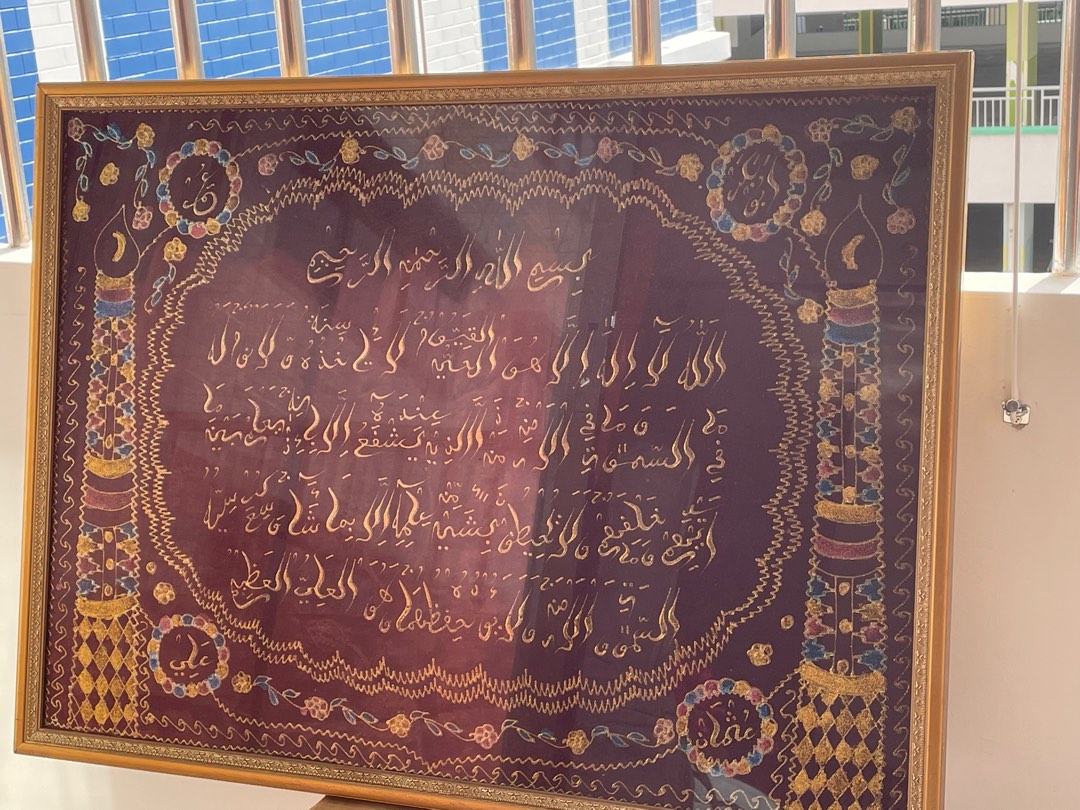 أبو بكر
عمر
بسم الله الرحمن الرحيم
الله لا إله إلا هو الحي القيوم لا تأخذه سنة ولا نوم له
ما في السموت وما في الأرض من ذا الذي يشفع عنده إلا بإذنه يعلم ما
أيديهم وما خلفهم ولا يحيطون بشيء من علمه إلا بما شاء وسع كرسيه
السموت والأرض ولا يؤده حفظهما وهو العلي العظيم
علي
عثمان